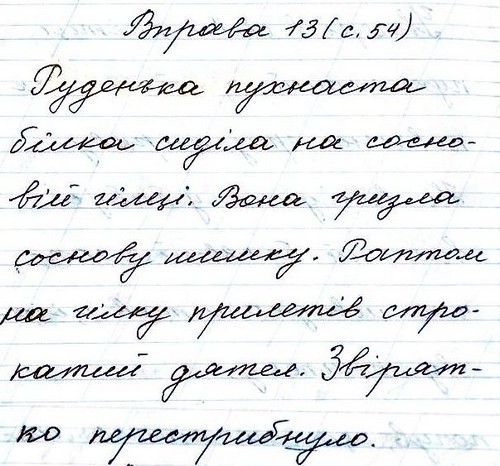 Вправа 13 (с. 54)
Руденька пухнаста
білка сиділа на сосно-
вій гілці. Вона гризла
соснову шишку. Раптом
на гілку прилетів стро-
катий дятел. Звірят-
ко перестрибнуло.